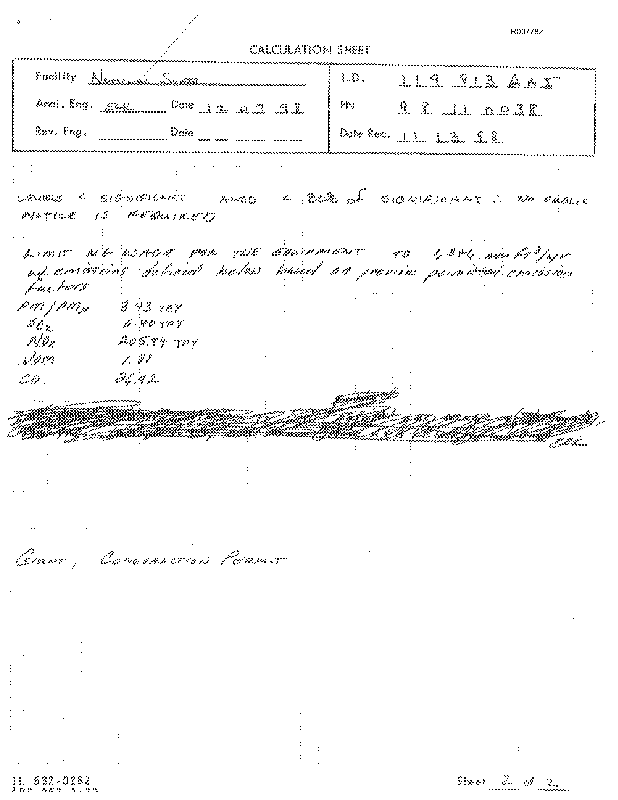 CALCULATION SHEET
Facility National Steel I.D. 119 813 AAI
Anal. Eng. Date 12 07 98 PN 98 11 0038
Rev. Eng. Date Date Rec. 11 13 98
< SIGNIFICANT AND < 80% of SIGNIFICANT ∴ NO PUBLIC
NOTICE IS REQUIRED
LIMIT NG USAGE FOR THE EQUIPMENT TO mm ft³/yr
w/ emissions defined below based on previous permitted emission
factors
PM/PM10 3.93 TPY
SO2 0.40 TPY
NOx 205.94 TPY
VOM 1.81
CO 26.92
GRANT, CONSTRUCTION PERMIT
IL 532-0282
Sheet 2 of 2